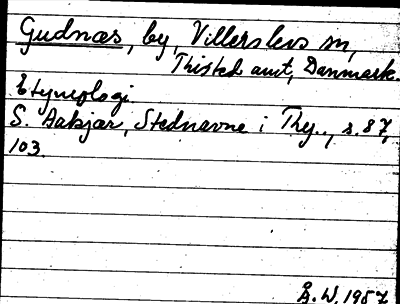 Gudnæs, by, Villerslev sn,
Thisted amt, Danmark.
Etymologi.
S. Aakjær, Stednavne i Thy.., s. 87,
103.
Å. W. 1957